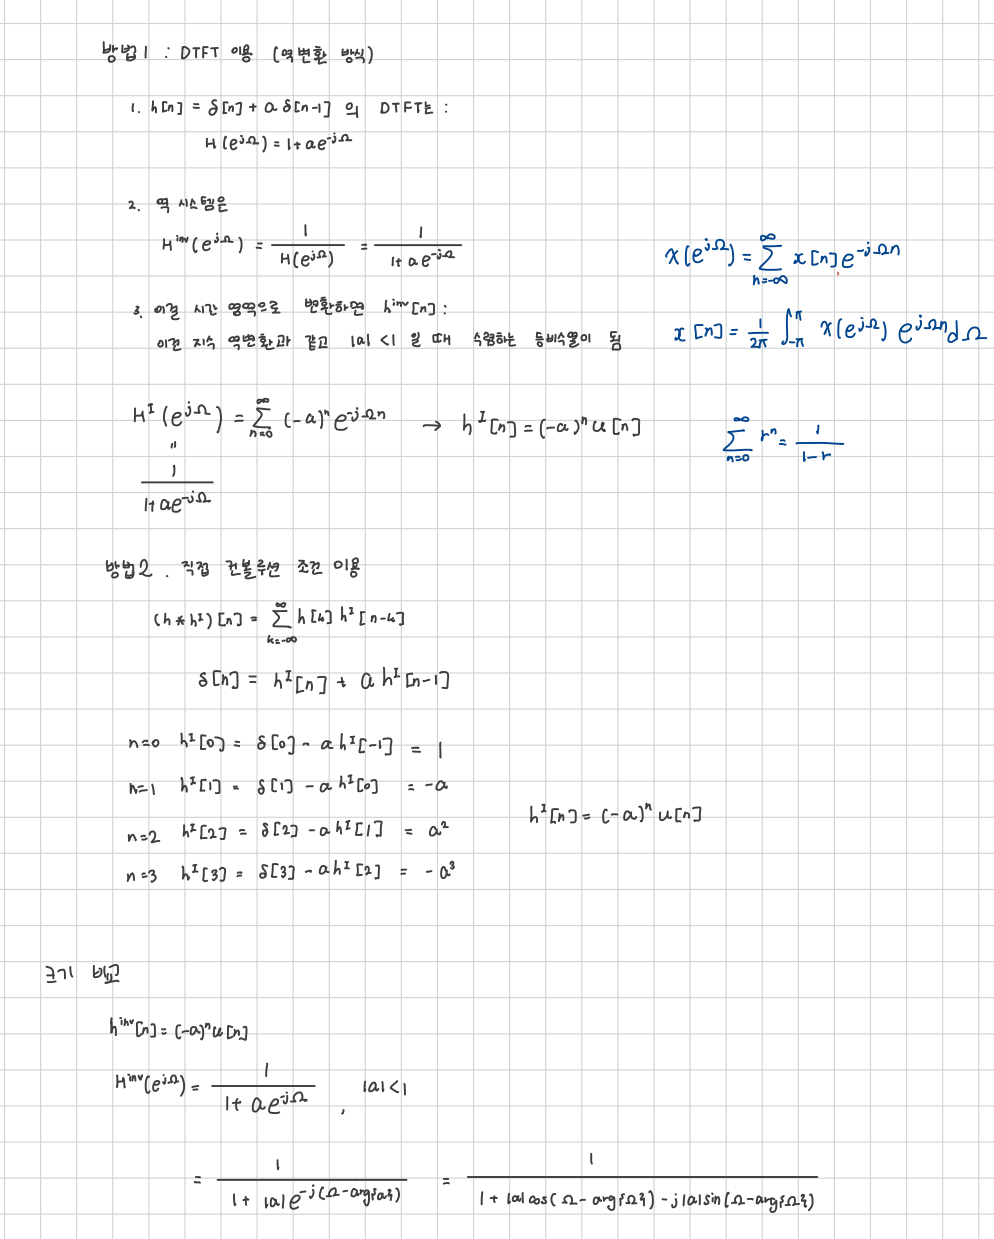 방법1 : DTFT 이용 (역변환 방식)
1. h[n] = δ[n] + a δ[n-1] 의 DTFT는 :
H(e^{jΩ}) = 1+ae^{-jΩ}
2. 역 시스템은
H^{inv}(e^{jΩ}) = \frac{1}{H(e^{jΩ})} = \frac{1}{1+ae^{-jΩ}}
3. 이걸 시간 영역으로 변환하면 h^{inv}[n] :
이건 지수 역변환과 같고 |a|<1 일 때 수렴하는 등비수열이 됨
X(e^{jΩ}) = \sum_{n=-∞}^{∞} x[n]e^{-jΩn}
x[n] = \frac{1}{2π} \int_{-π}^{π} X(e^{jΩ}) e^{jΩn}dΩ
H^I(e^{jΩ}) = \sum_{n=0}^{∞} (-a)^n e^{-jΩn} → h^I[n] = (-a)^n u[n]
"
\frac{1}{1+ae^{-jΩ}}
\sum_{n=0}^{∞} r^n = \frac{1}{1-r}
방법2. 직접 컨볼루션 조건 이용
(h*h^I)[n] = \sum_{k=-∞}^{∞} h[k] h^I[n-k]
δ[n] = h^I[n] + a h^I[n-1]
n=0 h^I[0] = δ[0] - a h^I[-1] = 1
n=1 h^I[1] = δ[1] - a h^I[0] = -a
n=2 h^I[2] = δ[2] - a h^I[1] = a^2
n=3 h^I[3] = δ[3] - a h^I[2] = -a^3
h^I[n] = (-a)^n u[n]
크기 비교
h^{inv}[n] = (-a)^n u[n]
H^{inv}(e^{jΩ}) = \frac{1}{1+ae^{-jΩ}}, |a|<1
= \frac{1}{1+|a|e^{-j(Ω-arg{a})}} = \frac{1}{1+|a|cos(Ω-arg{Ω})-j|a|sin(Ω-arg{Ω})}